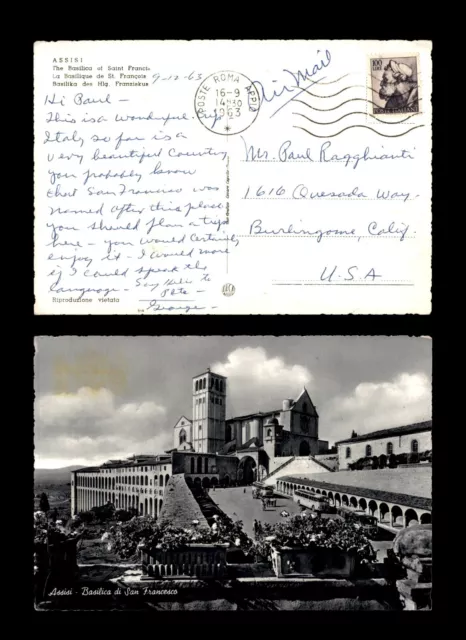 ASSISI
The Basilica of Saint Franci
La Basilique de St. François
Basilika des Hlg. Franziskus
9-12-63
POSTE ROMA APPIO
16-9
1963
Air Mail
100
Hi Paul -
This is a wonderful
Italy so far is a
very beautiful country
you probably know
that San Francisco was
named after this place.
you should plan a trip
here - you would certainly
enjoy it - I would more
if I could speak the
language - Say hello to
Pete -
George -
Mr. Paul Ragghianti
1616 Quesada Way.
Burlingame, Calif.
U.S.A
Riproduzione vietata
Assisi - Basilica di San Francesco